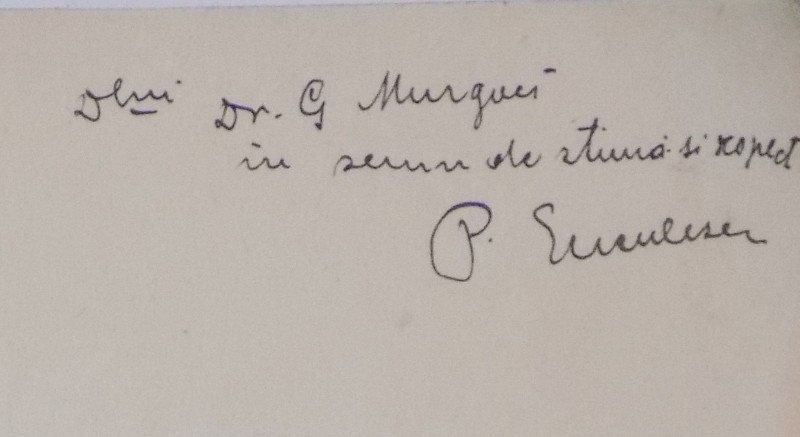 Dlui Dr. G Murgoci
în semn de stimă și respect
P. Enculescu